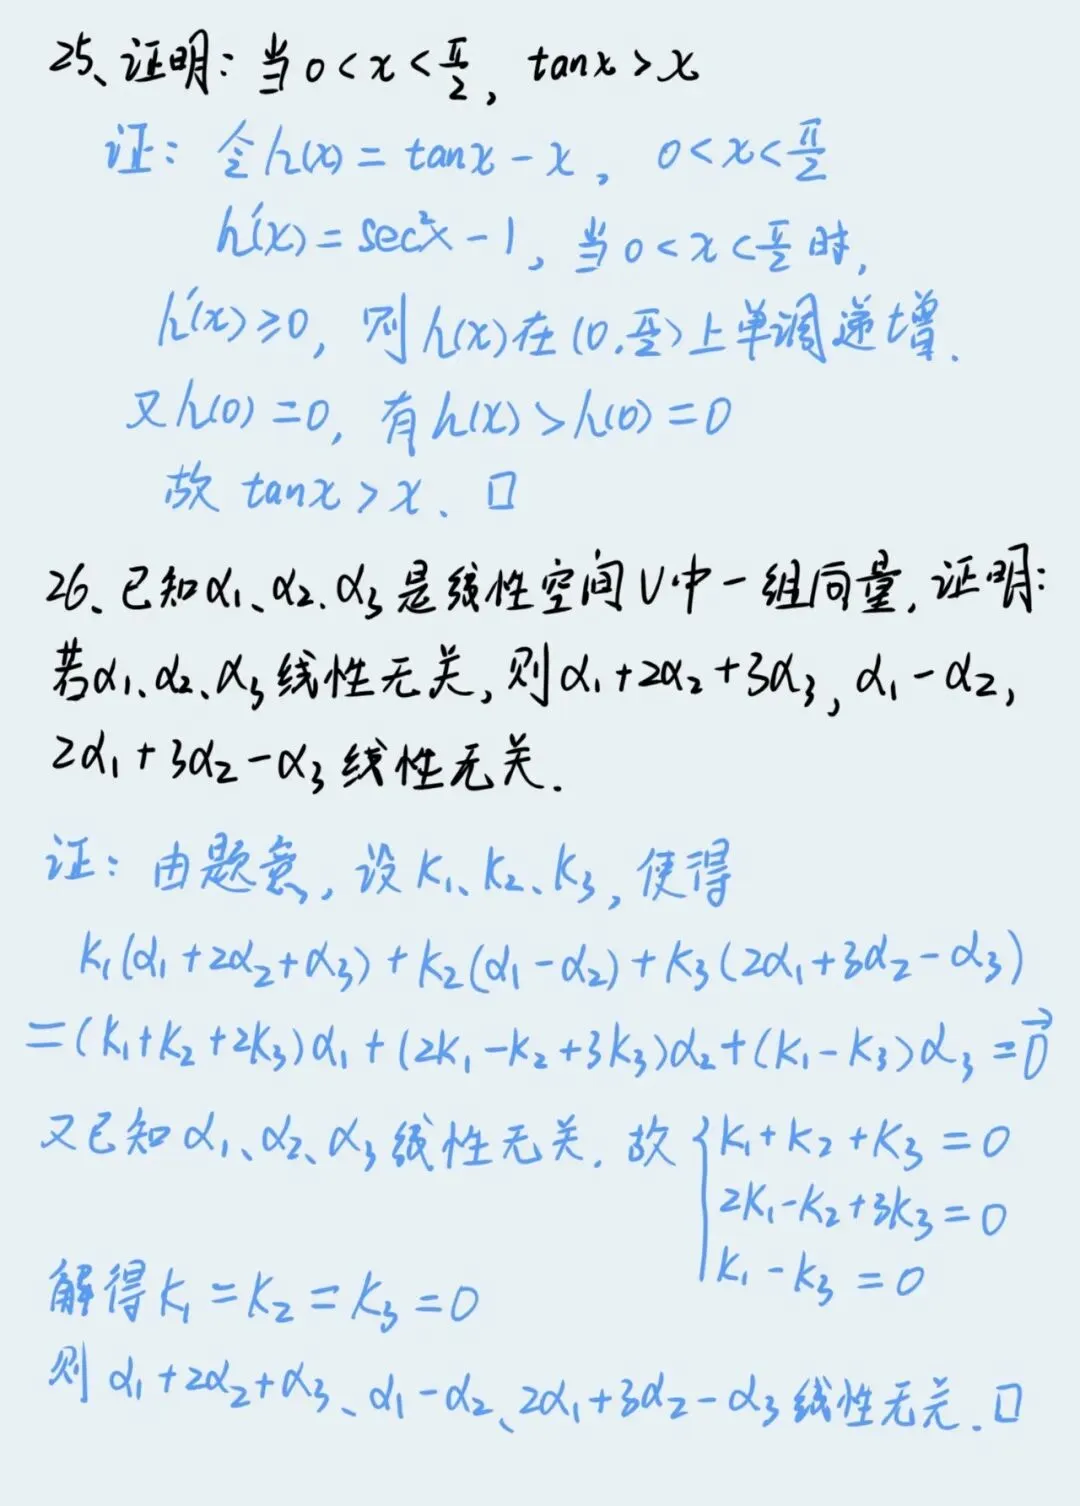 25、证明：当0<x<π/2，tanx>x
证：令h(x)=tanx-x，0<x<π/2
h'(x)=sec²x-1，当0<x<π/2时，
h'(x)≥0，则h(x)在(0,π/2)上单调递增.
又h(0)=0，有h(x)>h(0)=0
故tanx>x、□
26、已知α₁、α₂、α₃是线性空间V中一组向量，证明：
若α₁、α₂、α₃线性无关，则α₁+2α₂+3α₃，α₁-α₂，
2α₁+3α₂-α₃线性无关.
证：由题意，设k₁、k₂、k₃，使得
k₁(α₁+2α₂+α₃)+k₂(α₁-α₂)+k₃(2α₁+3α₂-α₃)
=(k₁+k₂+2k₃)α₁+(2k₁-k₂+3k₃)α₂+(k₁-k₃)α₃=0⃗
又已知α₁、α₂、α₃线性无关.故{k₁+k₂+k₃=0
2k₁-k₂+3k₃=0
k₁-k₃=0
解得k₁=k₂=k₃=0
则α₁+2α₂+α₃、α₁-α₂、2α₁+3α₂-α₃线性无关.□